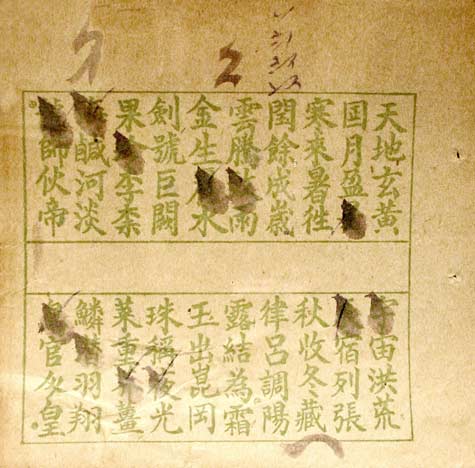 2
天地玄黃
月盈
寒來暑徃
閏餘成歲
雲騰雨
金生水
劍號巨闕
果李柰
鹹河淡
師伙帝
宇宙洪荒
宿列張
秋收冬藏
律呂調陽
露結為霜
玉出崑岡
珠稱夜光
菜重薑
鱗羽翔
官皇